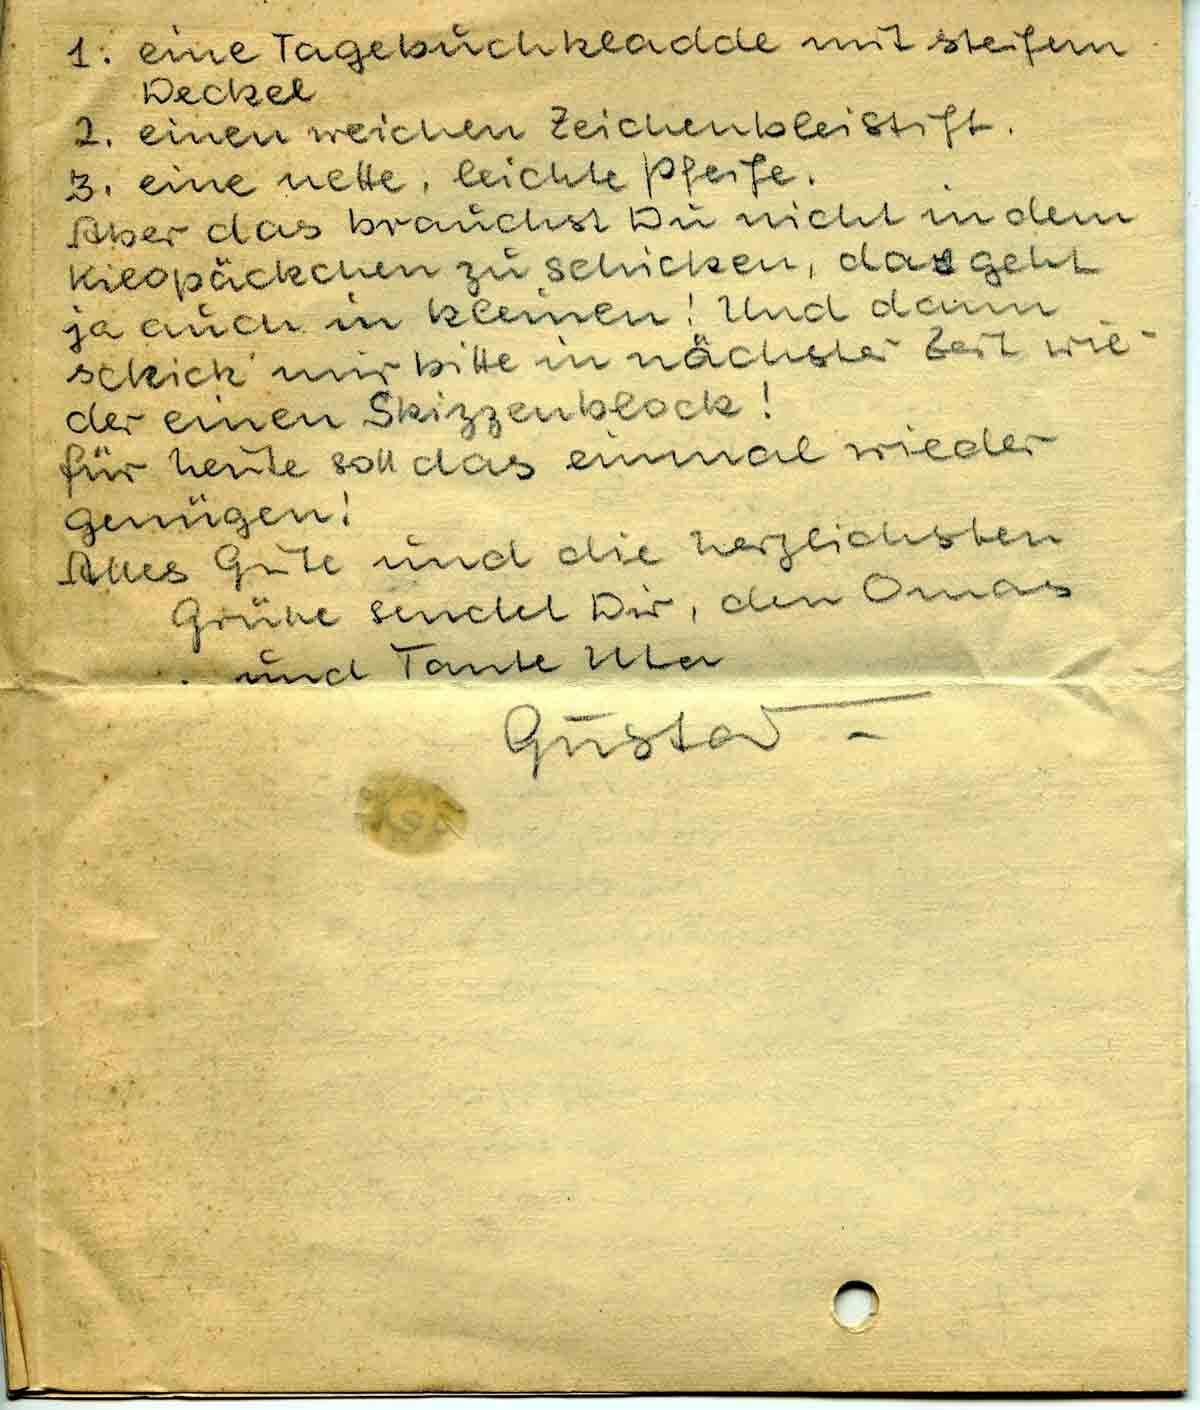 1. eine Tagebuchkladde mit steifem
Deckel
2. einen weichen Zeichenbleistift.
3. eine nette, leichte Pfeife.
Aber das brauchst Du nicht in dem
Kilopäckchen zu schicken, das geht
ja auch in kleinen! Und dann
schick' mir bitte in nächster Zeit wie-
der einen Skizzenblock!
für heute soll das einmal wieder
genügen!
Alles Gute und die herzlichsten
Grüße sendet Dir, den Omas
und Tante Uta
Gustav –